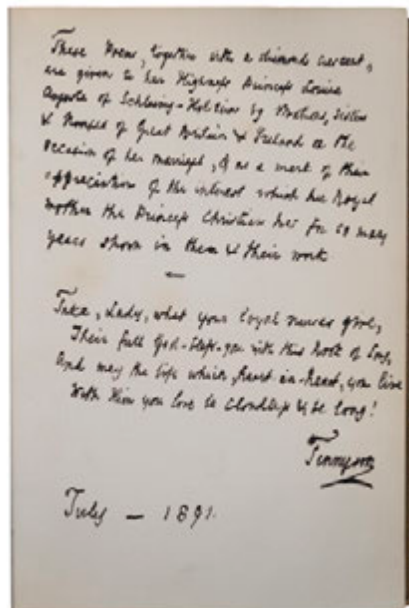 These Poems, together with a diamond crescent,
are given to her Highness Princess Louise
Augusta of Schleswig-Holstein by Matrons, Sisters
& Nurses of Great Britain & Ireland on the
occasion of her marriage, & as a mark of their
appreciation of the interest which her Royal
mother the Princess Christian has for so many
years shown in them & their work
—
Take, Lady, what your loyal nurses give,
Their full God-bless-you with this book of song,
And may the life which, heart-in-heart, you live
With Him you love be cloudless & be long!
Tennyson
July — 1891.